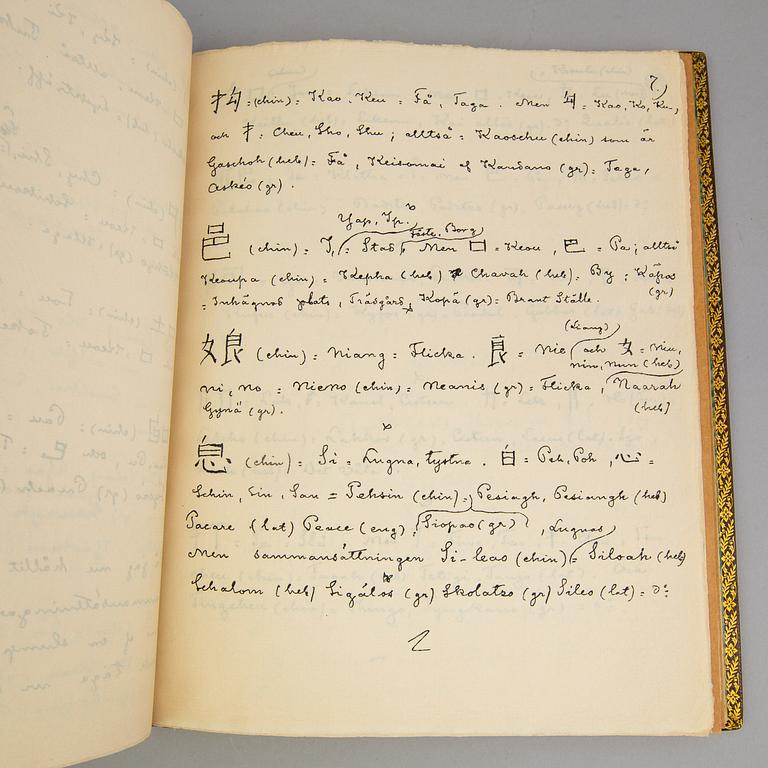 7.)
抅 = (chin) = Kao, Keu = Få, Taga. Men 勾 = Kao, Ko, Ku,
och 扌 = Cheu, Sho, Shu; alltså = Kaoschu (chin) som är
Gaschoh (heb) = Få, Keisomai af Kandano (gr) = Taga,
Askéo (gr).
Yap, Ip.
Fäste, Borg
邑 (chin) = I, = Stad, Men 口 = Keou, 巴 = Pa; alltså
Keoupa (chin) = Kepha (heb) Chavah (heb) = By; Kāpos
(gr)
= Inhägnad plats, Trädgård, Kopá (gr) = Brant Ställe.
(Liang)
娘 (chin) = Niang = Flicka. 良 = Nie och 女 = Niu,
nin, nun (heb)
ni, no = Nieno (chin) = Neanis (gr) = Flicka, Naarah
Gynä (gr). (heb)
息 (chin) = Si = Lugna, tystna. 自 = Peh, Poh, 心 =
Schin, Sin, San = Pehsin (chin) = Pesiagh, Pesiangh (heb)
Pacare (lat) Peace (eng), Siopao (gr), Lugnas
Men sammansättningen Si-leao (chin) = Siloah (heb)
Schalom (heb) Sigálos (gr) Skolatso (gr) Sileo (lat) =